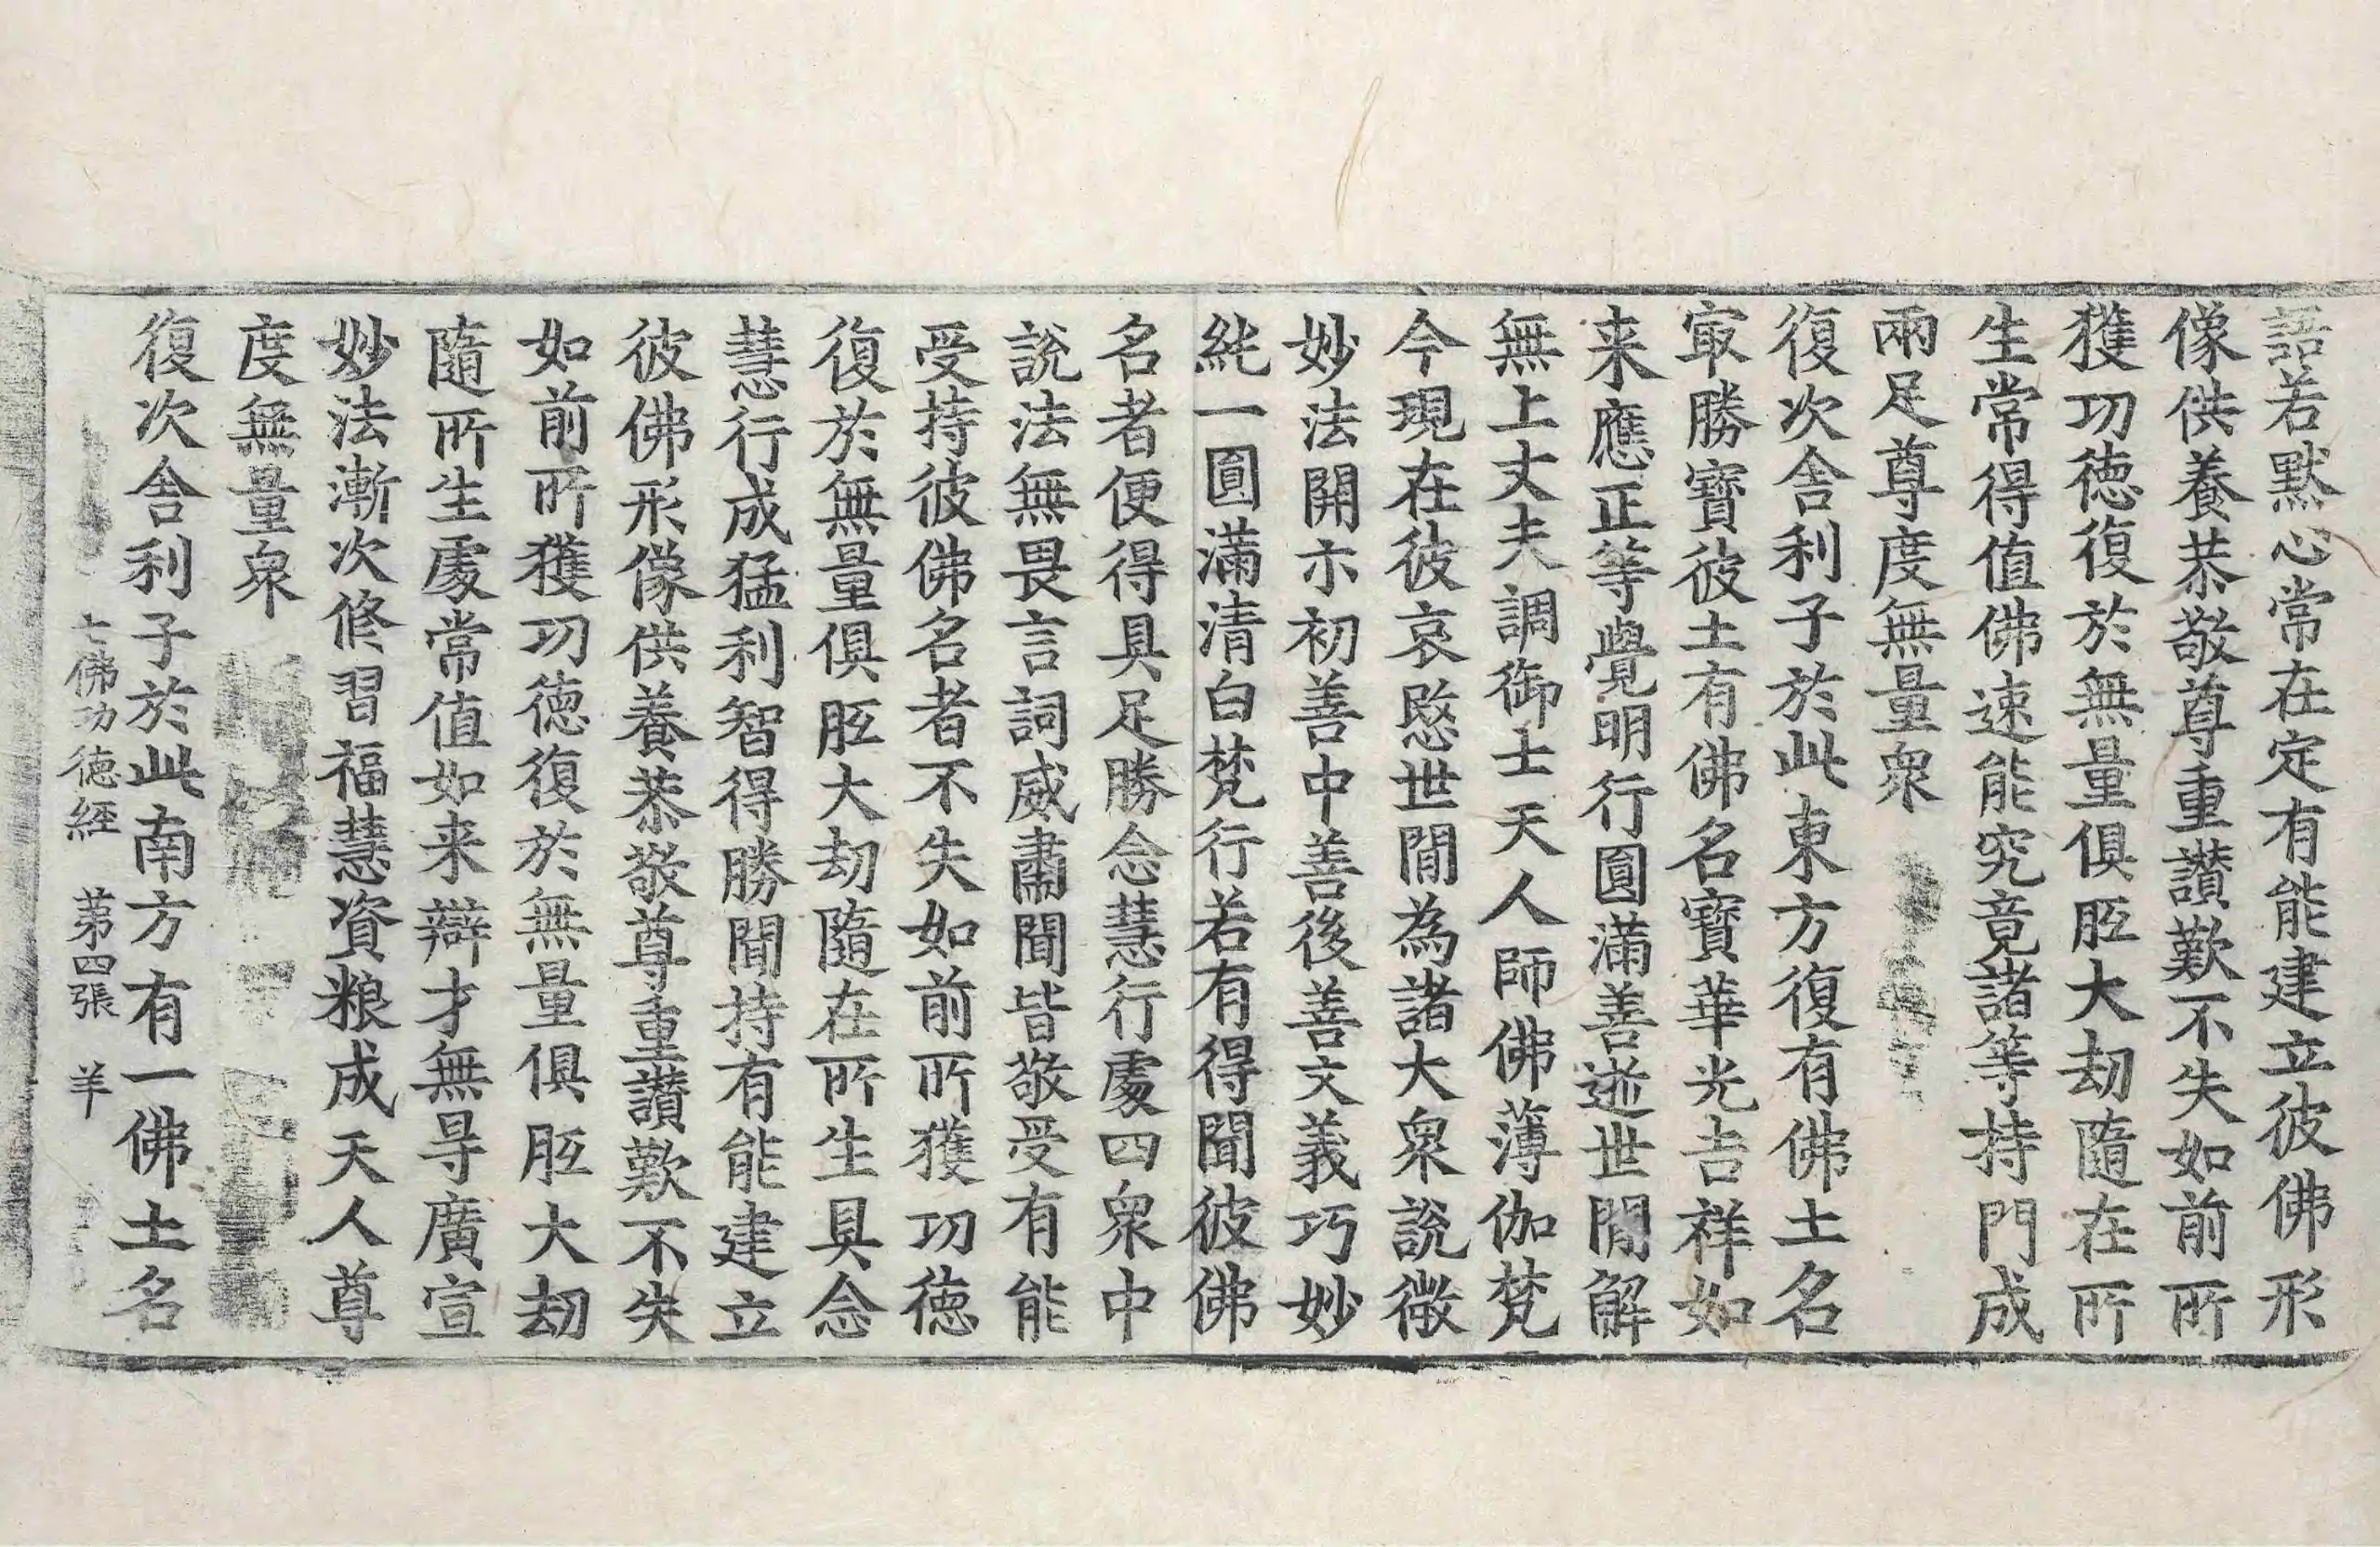 語若默心常在定有能建立彼佛形
像供養恭敬尊重讃歎不失如前所
獲功徳復於無量俱胝大劫隨在所
生常得值佛速能究竟諸等持門成
兩足尊度無量衆
復次舎利子於此東方復有佛土名
㝡勝寶彼土有佛名寶華光吉祥如
来應正等覺明行圓滿善逝世閒解
無上丈夫調御士天人師佛薄伽梵
今現在彼哀愍世閒為諸大衆說微
妙法開示初善中善後善文義巧妙
純一圓滿清白梵行若有得聞彼佛
名者便得具足勝念慧行處四衆中
說法無畏言詞威肅聞皆敬受有能
受持彼佛名者不失如前所獲功徳
復於無量俱胝大劫隨在所生具念
慧行成猛利智得勝聞持有能建立
彼佛形像供養恭敬尊重讃歎不失
如前所獲功徳復於無量俱胝大劫
隨所生處常值如来辯才無㝵廣宣
妙法漸次修習福慧資粮成天人尊
度無量衆
復次舎利子於此南方有一佛土名
七佛功徳經 苐四張 羊